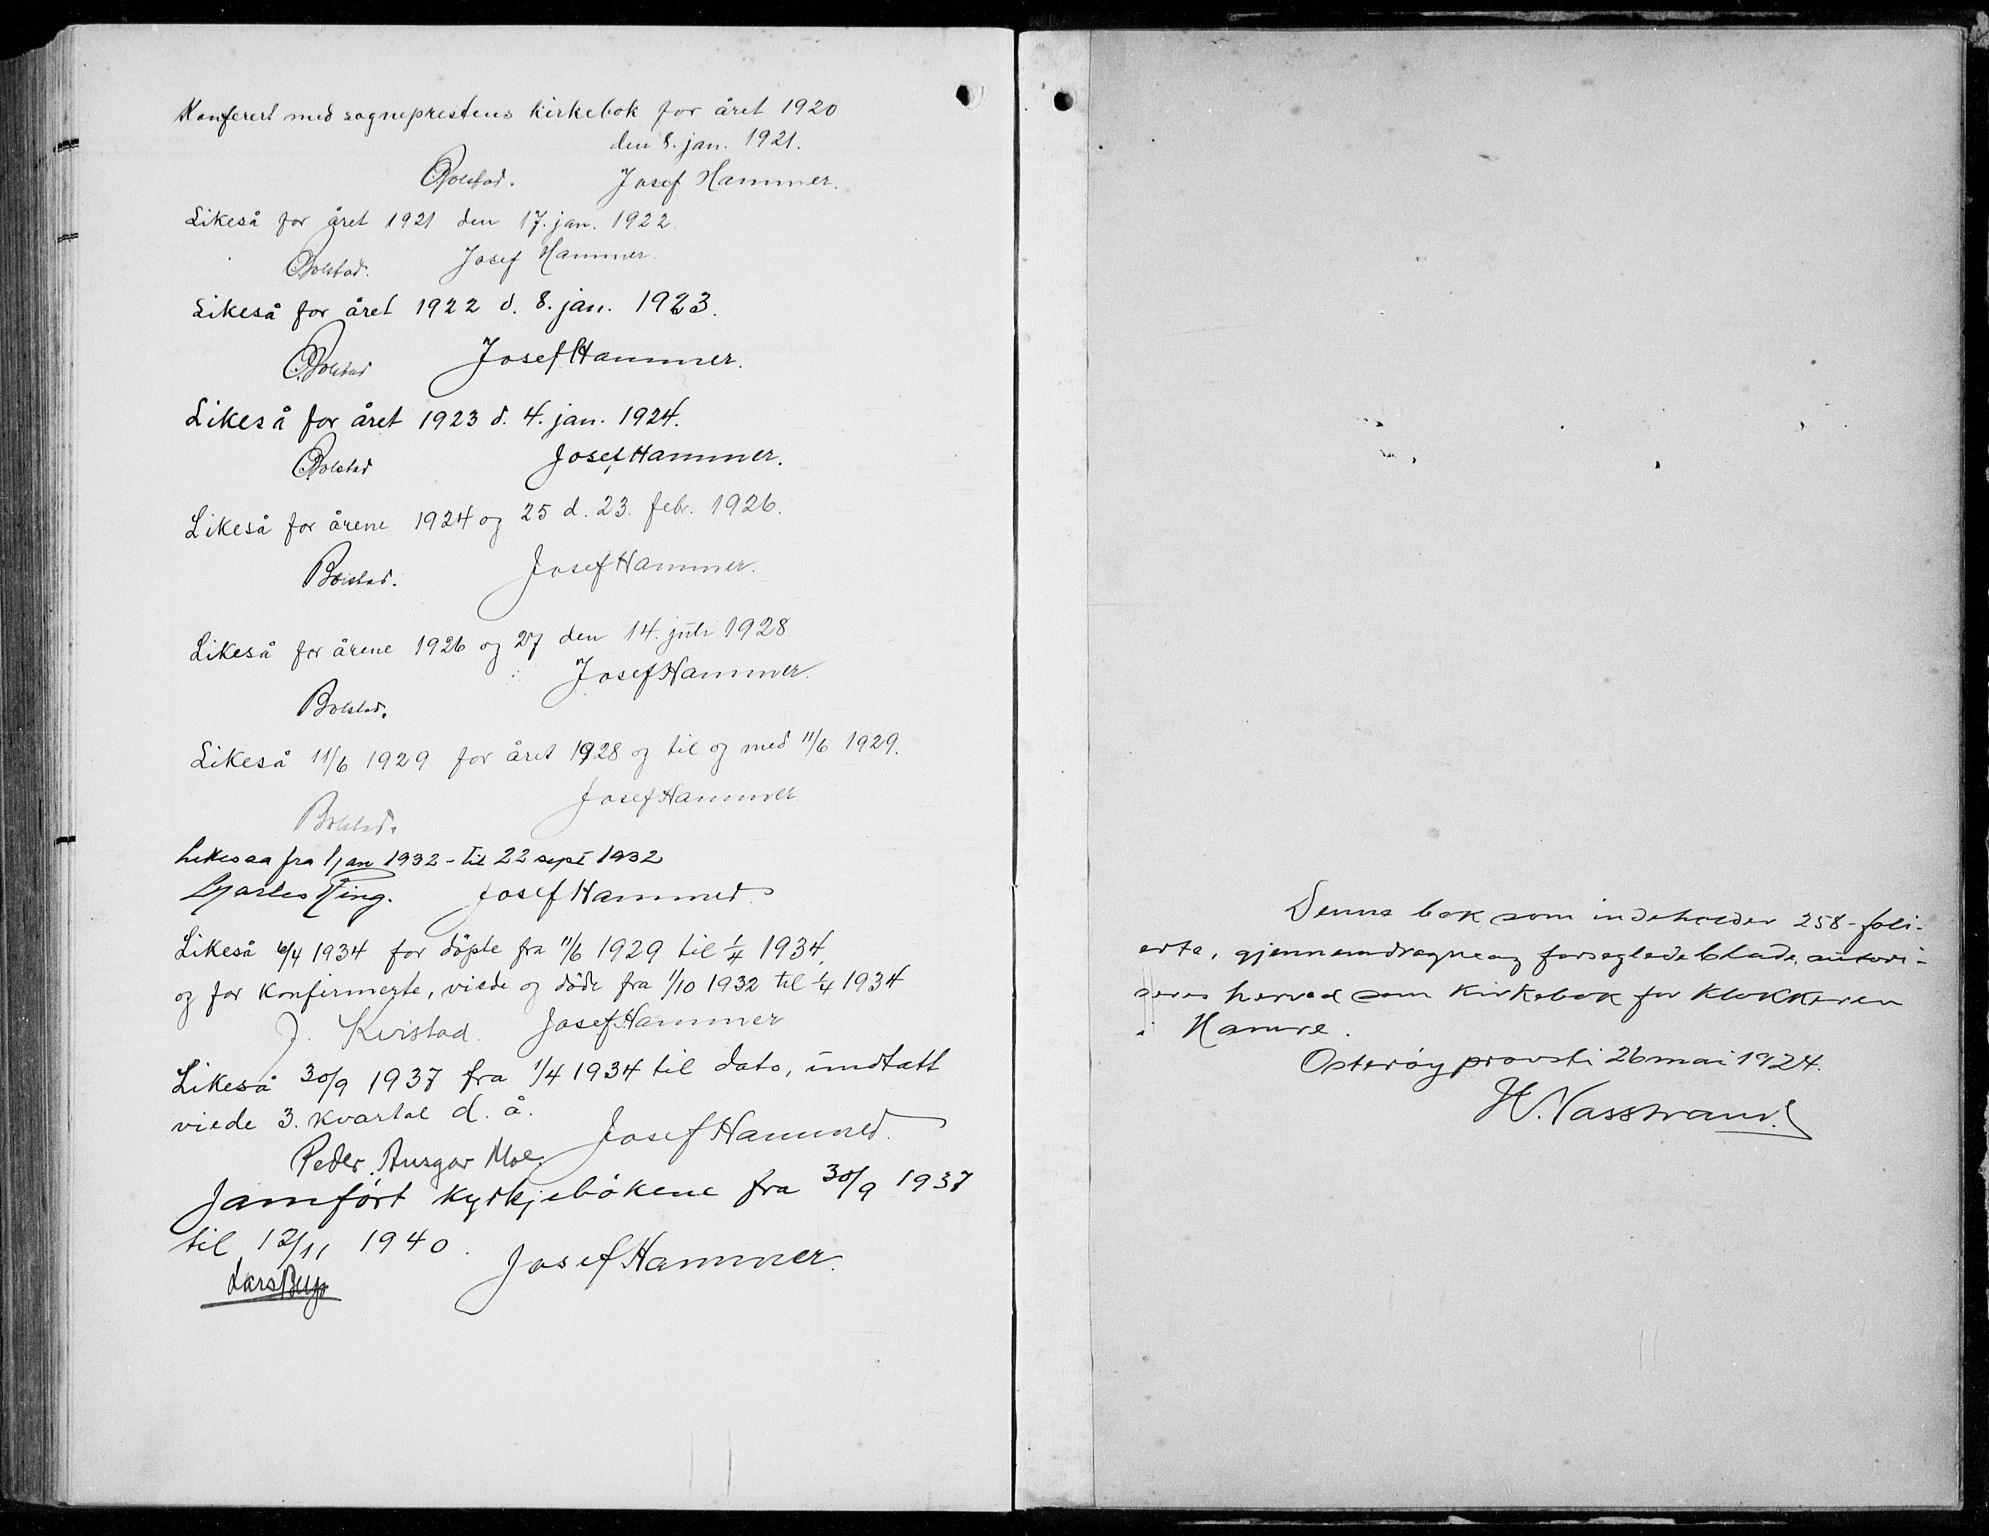 Konferert med sogneprestens kirkebok for året 1920
den 8. jan. 1921.
Bolstad. Josef Hammer.
Likeså for året 1921 den 17. jan. 1922.
Bolstad. Josef Hammer.
Likeså for året 1922 d. 8. jan. 1923.
Bolstad Josef Hammer.
Likeså for året 1923 d. 4. jan. 1924.
Bolstad Josef Hammer.
Likeså for årene 1924 og 25 d. 23. febr. 1926.
Bolstad. Josef Hammer.
Likeså for årene 1926 og 27 den 14. juli 1928.
Josef Hammer.
Bolstad.
Likeså 11/6 1929 for året 1928 og til og med 11/6 1929.
Josef Hammer
Bolstad.
Likesaa fra 1 jan 1932 - til 22 sept 1932
Charles Ring. Josef Hammer
Likeså 6/4 1934 for döpte fra 11/6 1929 til 1/4 1934,
og for konfirmerte, viede og döde fra 1/10 1932 til 1/4 1934
J. Kvistad. Josef Hammer
Likeså 30/9 1937 fra 1/4 1934 til dato, undtatt
viede 3. kvartal d. å.
Josef Hammer.
Peder Ansgar Moe.
Jamfört kyrkjebökene fra 30/9 1937
til 12/11 1940.
Josef Hammer.
Lars
Denne bok som indeholder 258 - foli-
erte, gjennemdragne og forseglede blade, autori-
seres herved som kirkebok for klokkeren
i Hamre.
Osterøy provsti 26 mai 1924.
H. Vasstrand.